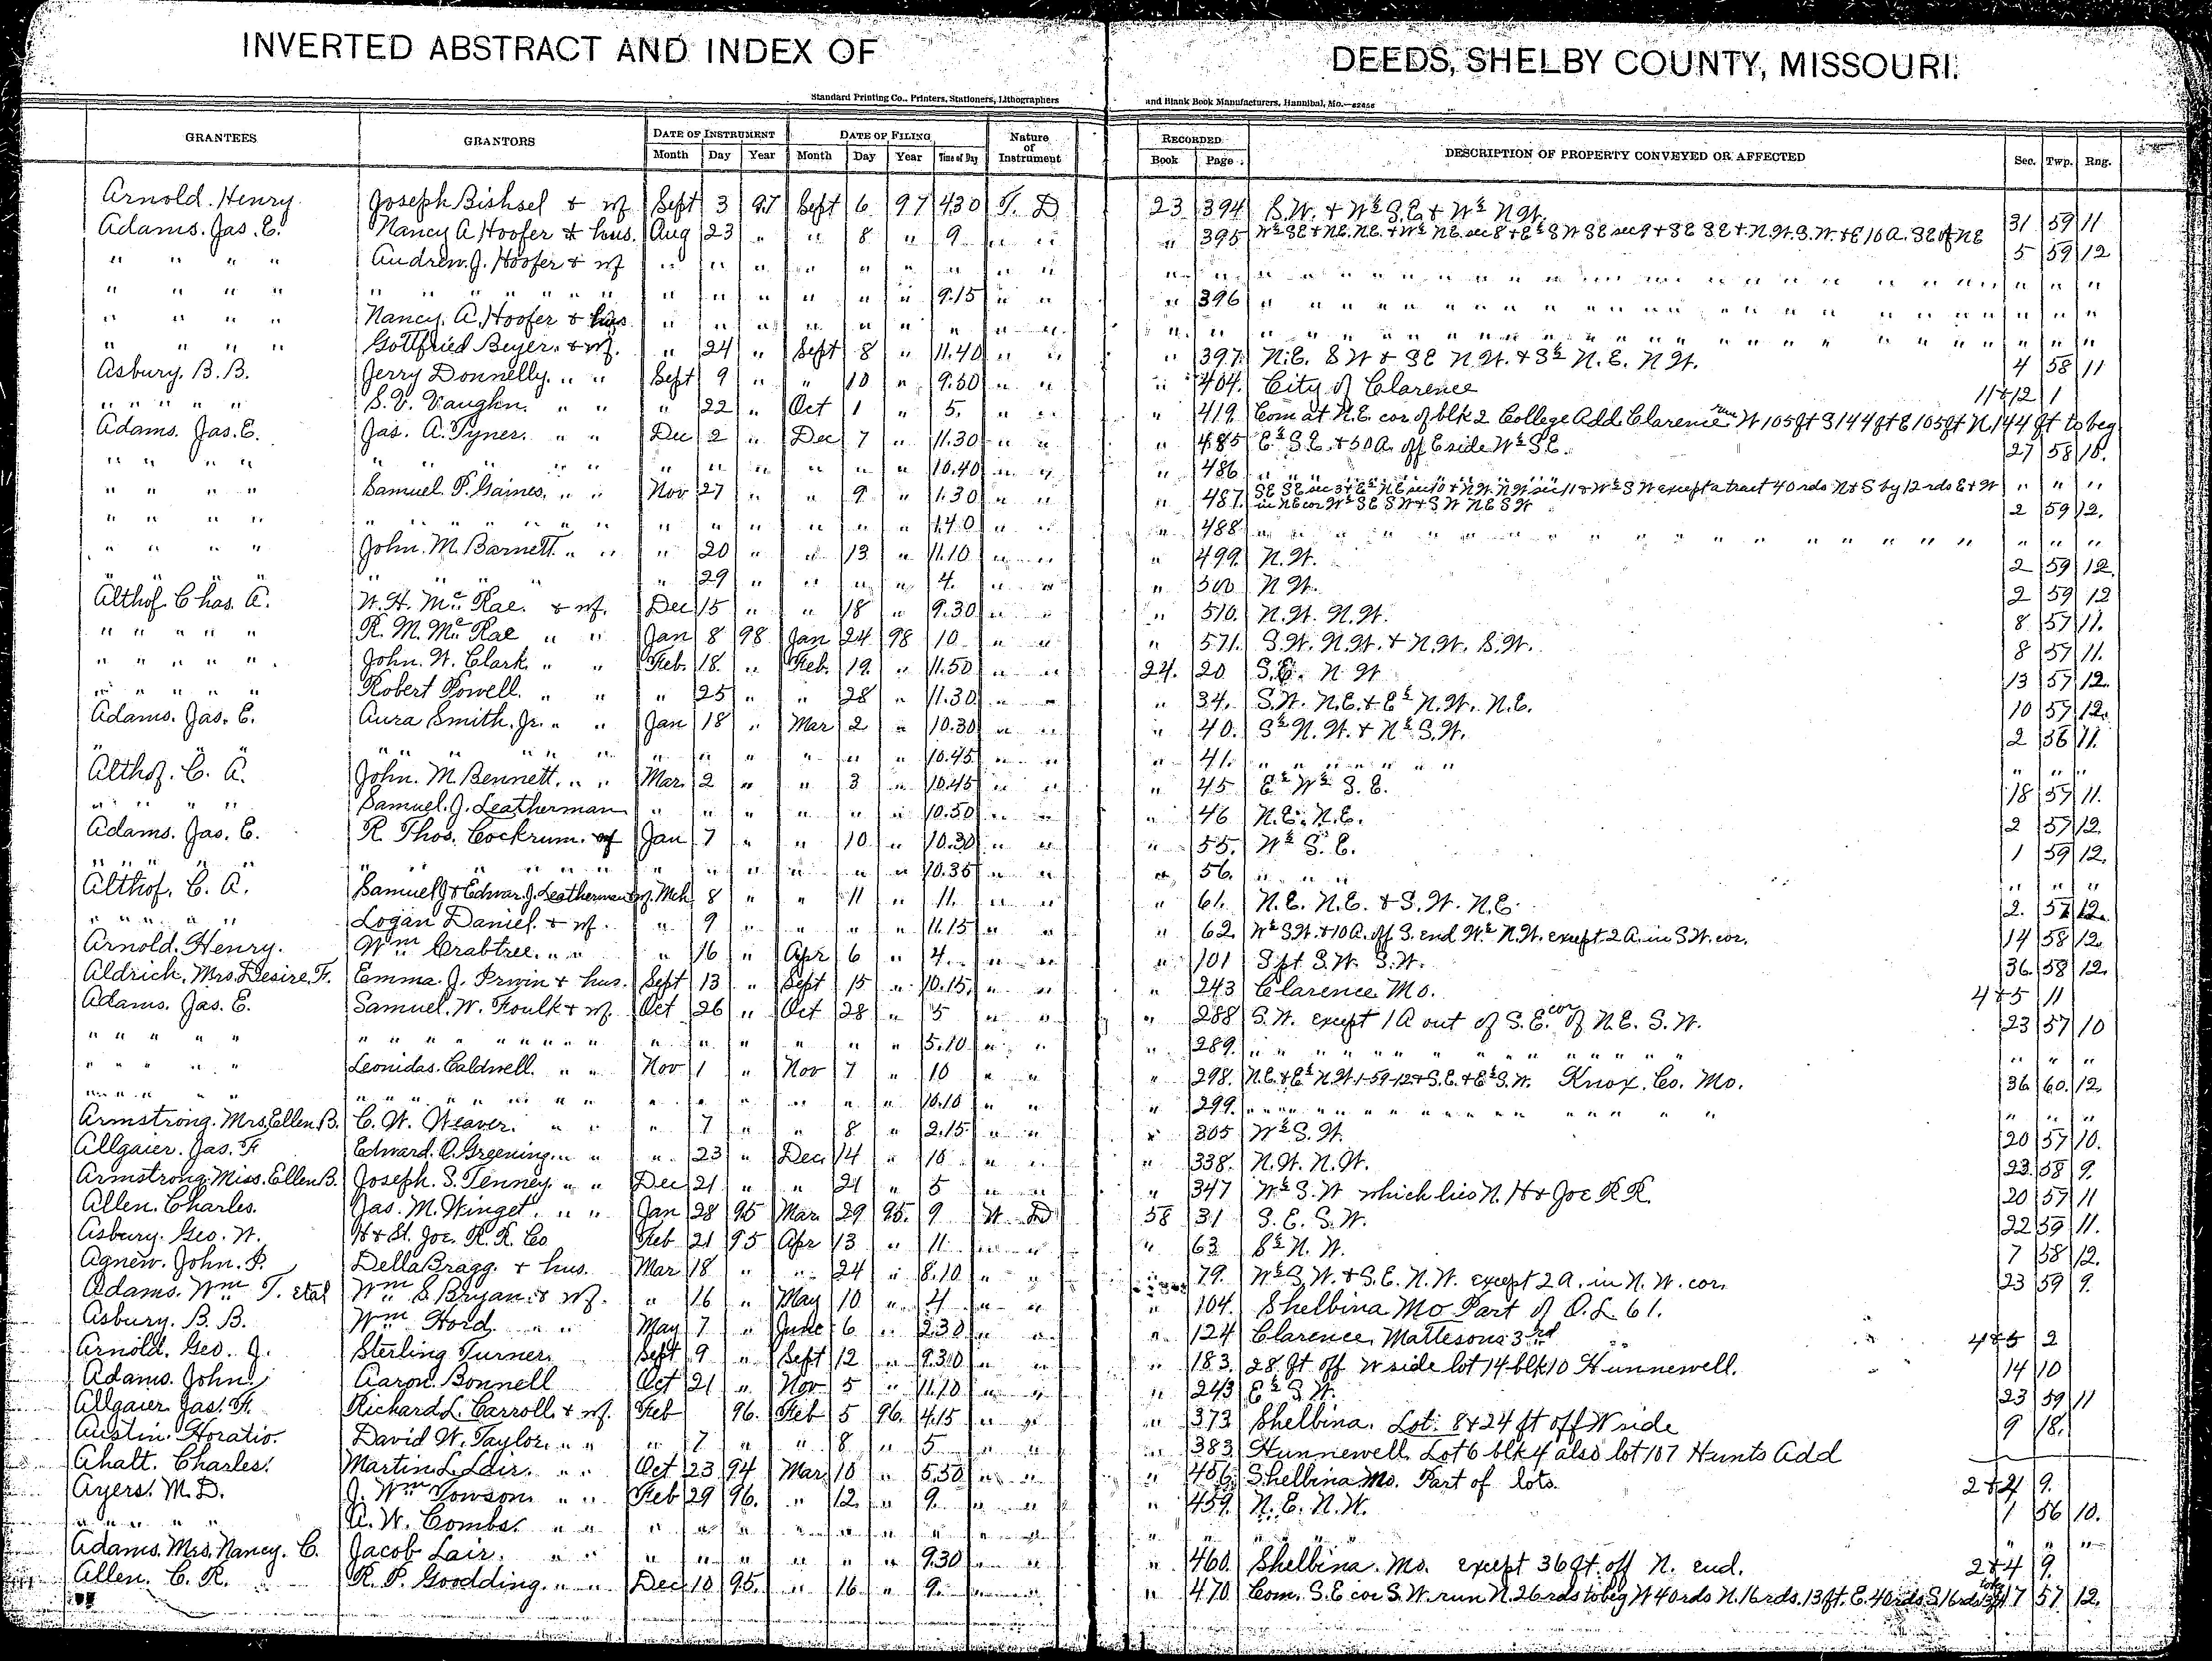 INVERTED ABSTRACT AND INDEX OF DEEDS, SHELBY COUNTY, MISSOURI.
Standard Printing Co., Printers, Stationers, Lithographers and Blank Book Manufacturers, Hannibal, Mo.
GRANTEES GRANTORS DATE OF INSTRUMENT DATE OF FILING Nature of Instrument RECORDED DESCRIPTION OF PROPERTY CONVEYED OR AFFECTED Sec. Twp. Rng.
Month Day Year Month Day Year Time of Day Book Page
Arnold. Henry. Joseph Bishsel & wf Sept 3 97 Sept 6 97 4.30 T. D 23 394 S.W. & W½ S.E. & W½ N.W. 31 59 11
Adams. Jas. E. Nancy A Hoofer & hus. Aug 23 " " 8 " 9 " " " 395 W½ SE & NE. NE. & W½ NE. sec 8 & E½ SW SE sec 9 & SE SE & N.W. S.W. & E 10 A. SE of NE 5 59 12
" " " " Andrew. J. Hoofer & wf " " " " " " " " " " " " " " " " "
" " " " " " " " " " " " " " " 9.15 " " " 396 " " " " " " "
" " " " Nancy. A. Hoofer & hus " " " " " " " " " " " " " " " "
" " " " Gottfried Beyer. & wf. " 24 " Sept 8 " 11.40 " " " 397. N.E. SW & SE N.W. & S½ N.E. N.W. 4 58 11
Asbury. B. B. Jerry Donnelly. " " Sept 9 " " 10 " 9.50 " " " 404. City of Clarence 11&12 1
" " " " Vaughn. " " " 22 " Oct 1 " 5. " " " 419. Com at N.E. cor of blk 2 College Add. Clarence run W 105 ft S 144 ft E 105 ft N 144 ft to beg
Adams. Jas. E. Jas. A. Tyner. " " Dec 2 " Dec 7 " 11.30 " " " 485 E½ S.E. & 50 A. off E side W½ S.E. 27 58 10.
" " " " " " " " " " " " " 10.40 " " " 486 " " " " " "
" " " " Samuel. P. Gaines. " " Nov 27 " " 9 " 1.30 " " " 487. SE SE sec 3 & E½ NE sec 10 & N.W. N.W. sec 11 & W½ SW except a tract 40 rds N & S by 12 rds E & W in NE cor W½ SE SW & SW NE SW 2 59 12.
" " " " " " " " " " " " " 1.40 " " " 488 " " " " " "
" " " " John. M. Barnett. " " " 20 " " 13 " 11.10 " " " 499. N.W. 2 59 12.
" " " " " " " " " 29 " " " " 4. " " " 500 N.W. 2 59 12
Althof. Chas. A. W. H. McRae. & wf. Dec 15 " " 18 " 9.30 " " " 510. N.W. N.W. 8 57 11.
" " " " R. M. McRae " " Jan 8 98 Jan 24 98 10 " " " 571. S.W. N.W. & N.W. S.W. 8 57 11.
" " " " John. W. Clark. " " Feb. 18. " Feb. 19. " 11.50 " " 24. 20 S.E. N.W 13 57 12.
" " " " Robert Powell. " " " 25 " " 28 " 11.30 " " " 34. S.W. N.E. & E½ N.W. N.E. 10 57 12.
Adams. Jas. E. Aura Smith. Jr. " " Jan 18 " Mar 2 " 10.30 " " " 40. S½ N.W. & N½ S.W. 2 56 11.
" " " " " " " " " " " " 10.45 " " " 41. " " " " " "
Althof. C. A. John. M. Bennett. " " Mar. 2 " " 3 " 10.45 " " " 45 E½ W½ S.E. 18 57 11.
" " " Samuel. J. Leatherman " " " " " " 10.50 " " " 46 N.E. N.E. 2 57 12.
Adams. Jas. E. R Thos. Cockrum. wf Jan 7 " " 10 " 10.30 " " " 55. W½ S.E. 1 59 12.
" " " " " " " " " " " " 10.35 " " " 56. " " " " "
Althof. C. A. Samuel J & Edwar. J. Leatherman & wf. Mch 8 " " 11 " 11. " " " 61. N.E. N.E. & S.W. N.E. 2. 57 12.
" " " " Logan Daniel. & wf. " 9 " " " " 11.15 " " " 62. W½ SW. & 10 A. off S. end W½ N.W. except 2 A. in SW. cor. 14 58 12.
Arnold. Henry. Wm Crabtree. " " " 16 " Apr 6 " 4. " " " 101 S pt S.W. S.W. 36 58 12.
Aldrich. Mrs. Desire. F. Emma. J. Irwin & hus. Sept 13 " Sept 15 " 10.15 " " " 243 Clarence Mo. 4&5 11
Adams. Jas. E. Samuel. W. Foulk & wf. Oct 26 " Oct 28 " 5 " " " 288 S.W. except 1 A out of S.E. cor of N.E. S.W. 23 57 10
" " " " " " " " " " " " " 5.10 " " " 289. " " " " " "
" " " " Leonidas. Caldwell. " " Nov 1 " Nov 7 " 10 " " " 298. N.E. & E½ N.W. 1-59-12 & S.E. & E½ S.W. Knox. Co. Mo. 36 60. 12.
" " " " " " " " " " " " " 10.10 " " " 299. " " " " " "
Armstrong. Mrs. Ellen. B. C. W. Weaver. " " " 7 " " 8 " 2.15 " " " 305 W½ S.W. 20 57 10.
Allgaier. Jas. F. Edward. C. Greening. " " " 23 " Dec. 14 " 10 " " " 338. N.W. N.W. 23. 58 9.
Armstrong. Miss. Ellen B. Joseph. S. Tenney. " " Dec 21 " " 21 " 5 " " " 347 W½ S.W which lies N. H & Joe R R. 20 57 11
Allen. Charles. Jas. M. Winget. " " Jan 28 95 Mar. 29 95. 9 W. D 58 31 S.E. S.W. 22 59 11.
Asbury. Geo. W. H & St. Joe. R. R. Co Feb 21 95 Apr 13 " 11 " " " 63 S½ N.W. 7 58 12.
Agnew. John. P. Della Bragg. & hus. Mar 18 " " 24 " 8.10 " " " 79. W½ S.W. & S.E. N.W. except 2 A. in N.W. cor. 23 59 9.
Adams. Wm T. etal Wm S Bryan. & wf. " 16 " May 10 " 4 " " " 104. Shelbina Mo Part of O.L. 61.
Asbury. B. B. Wm Hord. " " May 7 " June 6 " 2.30 " " " 124 Clarence Mattesons 3rd 4&5 2
Arnold. Geo. J. Sterling Turner. Sept 9 " Sept 12 " 9.30 " " " 183. 28 ft off W side lot 14 blk 10 Hunnewell. 14 10
Adams. John. Aaron. Bonnell Oct 21 " Nov 5 " 11.10 " " " 243 E½ S.W. 23 59 11
Allgaier. Jas. F. Richard L. Carroll. & wf. Feb 96. Feb 5 96. 4.15 " " " 373 Shelbina. Lot. 8 & 24 ft off W side 9 18.
Austin. Horatio. David W. Taylor. " " " 7 " " 8 " 5 " " " 383 Hunnewell. Lot 6 blk 4 also lot 107 Hunts Add
Ahalt. Charles. Martin. L. Lair. " " Oct 23 94 Mar. 10 " 5.30 " " " 456 Shelbina Mo. Part of lots. 2&4 9.
Ayers. M. D. J. Wm Towson. " " Feb 29 96. " 12 " 9. " " " 459. N.E. N.W. 1 56 10.
" " " " A. W. Combs. " " " " " " " " " " " " " " " "
Adams. Mrs. Nancy. C. Jacob Lair. " " " " " " " " 9.30 " " " 460. Shelbina. Mo. except 36 ft. off N. end. 2&4 9.
Allen. C. R. R. P. Goodding. " " Dec 10 95. " 16 " 9. " " " 470 Com. S.E cor S.W. run N. 26 rds to beg W 40 rds N. 16 rds. 13 ft. E. 40 rds. S 16 rds 13 ft to beg 17 57 12.